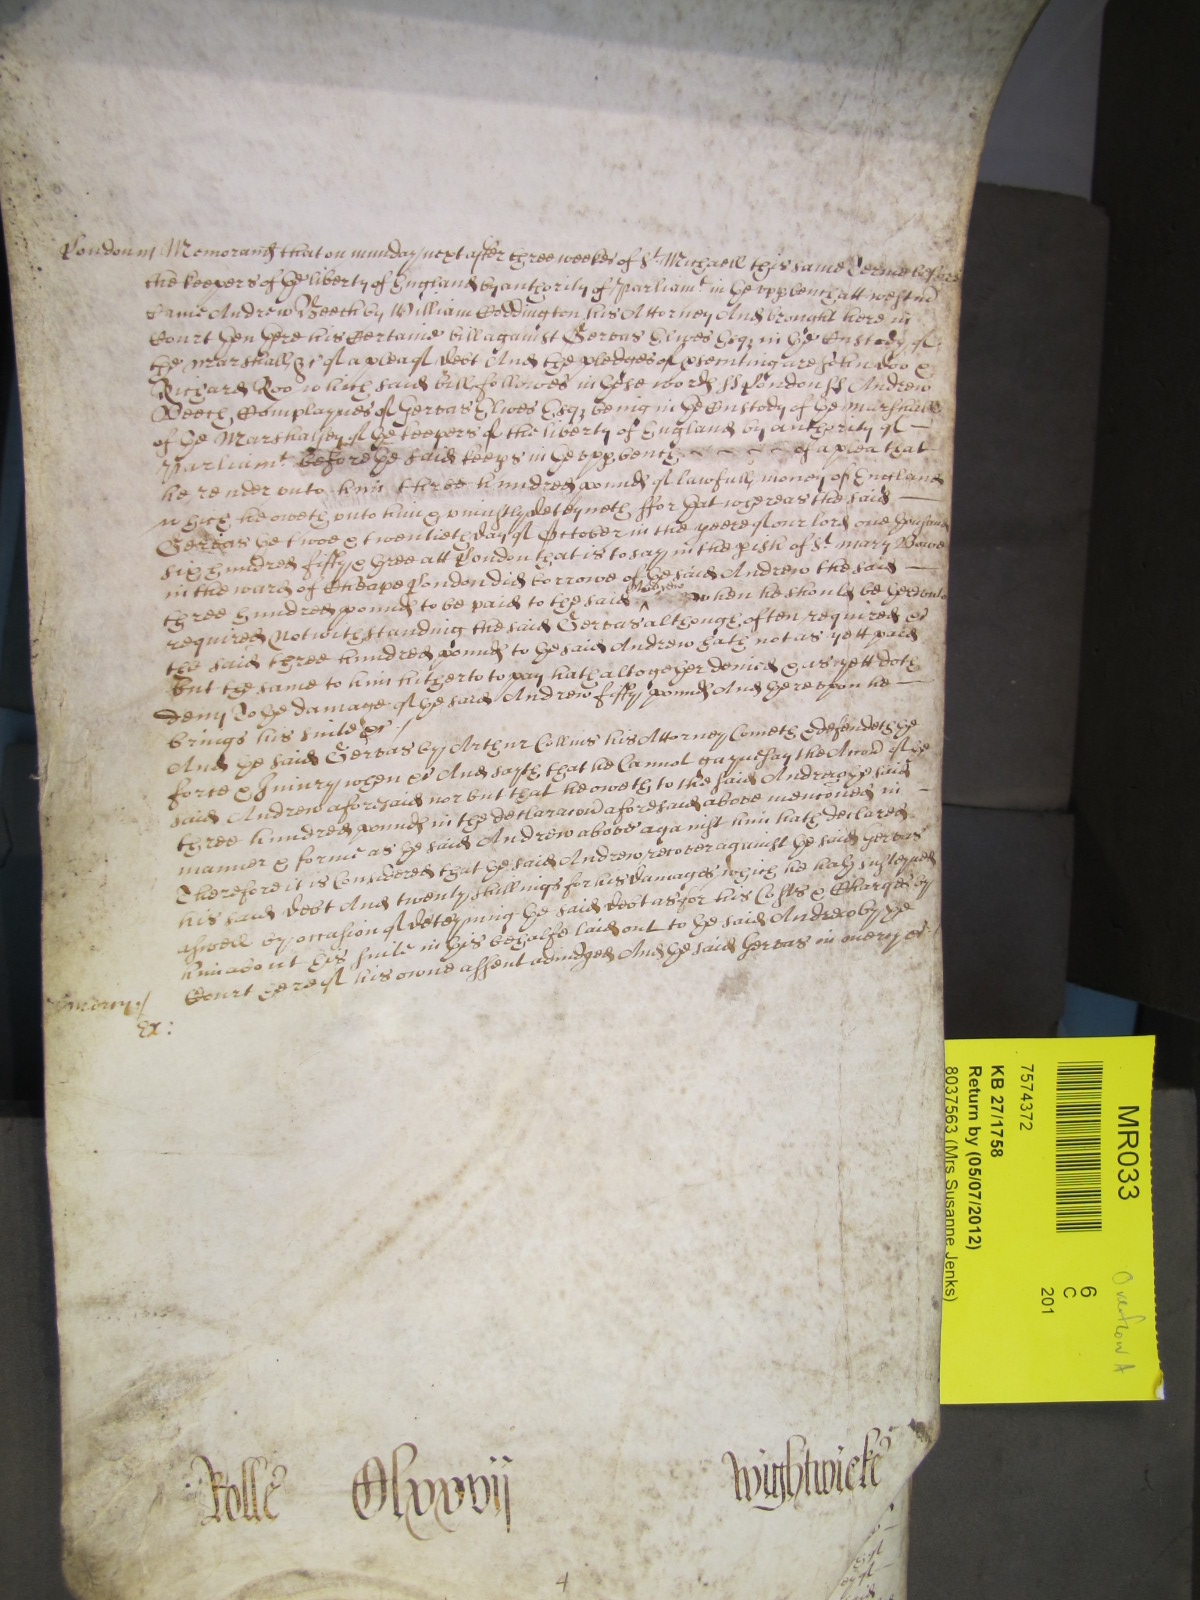 London ss Memorand that on munday next after three weekes of St Michaell this same Terme before
the keepers of the liberty of England by authority of Parliamt in the upp bench att westm
Came Andrew Beech by William Eddington his Attorney And brought here in
Court then here his Certaine bill against Gervas Elwes Esqz in the Custody of
the Marshall &c of a plea of debt And the pledges of prsenting are John Doo &
Richard Roo which said bill followes in these words ss London ss Andrew
Beech Complaynes of Gervas Elwes Esqz being in the Custody of the Marshall
of the Marshalsey of the keepers of the liberty of England by authority of
Parliamt before the said keeps in the upp bench of a plea that
he render unto him three hundred pounds of lawfull money of England
which he oweth unto him & uniustly deteyneth ffor that whereas the said
Gervas the twoe & twentieth day of October in the yeere of our lord one thousand
six hundred fifty & three att London that is to say in the pish of St mary Bowe
in the ward of Cheape London did borrowe of the said Andrew the said
three hundred pounds to be paid to the said Andrew when he should be thereunto
required Notwithstanding the said Gervas although often required &c
the said three hundred pounds to the said Andrew hath not as yett paid
but the same to him hitherto to pay hath altogether denied & as yett doth
deny To the damage of the said Andrew fifty pounds And thereupon he
brings his suite &c /
And the said Gervas by Arthur Collins his Attorney Cometh & defendeth the
force & Iniury when &c And sayth that he Cannot gaynesay the Accon of the
said Andrew aforesaid nor but that he oweth to the said Andrew the said
three hundred pounds in the declaracon aforesaid above menconed in
manner & forme as the said Andrew above against him hath declared
Therefore it is Considered that the said Andrew recover against the said Gervas
his said debt And twenty shillings for his damages which he hath susteyned
aswell by occasion of deteyning the said debt as for his Costs & Charges by
him about his suite in this behalfe laid out to the said Andrew by the
Court here of his owne assent adiudged And the said Gervas in mercy &c /
In mercy /
Ex:
Rolle
Clxxxvij
Wightwicke
4
MR033
7574372
KB 27/1758
Return by (05/07/2012)
8037563 (Mrs Susanne Jenks)
6
C
201
Overflow A